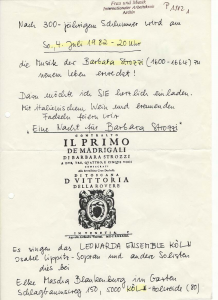 Frau und Musik
Internationaler Arbeitskreis
P 1982,
Nach 300-jährigem Schlummer wird am
So, 4. Juli 1982 - 20 Uhr
die Musik der Barbara Strozzi (1600-1664) zu
neuem Leben erweckt!
Dazu möchte ich SIE herzlich einladen.
Mit Italienischem Wein und brennenden
Fackeln feiern wir
"Eine Nacht für Barbara Strozzi"
CONTRALTO
IL PRIMO
DE MADRIGALI
DI BARBARA STROZZI
A DVE, TRE, QVATTRO, E CINQVE VOCI
DI TOSCANA
D VITTORIA
DELLA ROVERE
Es singen das LEONARDA ENSEMBLE KÖLN
Isabel Lippitz-Sopran und andere Solisten
dies bei
Elke Mascha Blankenburg im Garten
Schlagbaumsweg 150, 5000 KÖLN-Holweide (80)